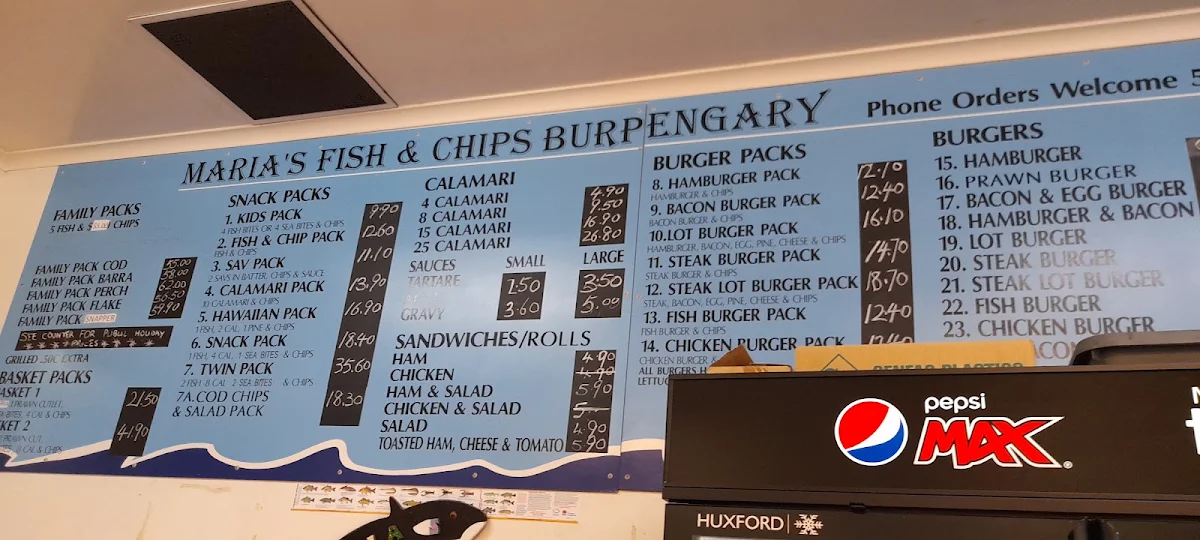 MARIA'S FISH & CHIPS BURPENGARY
Phone Orders Welcome 5
FAMILY PACKS
5 FISH & CHIPS
FAMILY PACK COD
FAMILY PACK BARRA 58.00
FAMILY PACK PERCH 62.00
FAMILY PACK FLAKE 56.50
FAMILY PACK SNAPPER 59.80
SEE COUNTER FOR PUBLIC HOLIDAY
GRILLED .50C EXTRA
BASKET PACKS
BASKET 1 21.50
1 PRAWN CUTLET,
BITES, 4 CAL & CHIPS
KET 2 41.90
PRAWN CUT,
CAL & CHIPS
SNACK PACKS
1. KIDS PACK 9.90
4 FISH BITES OR 4 SEA BITES & CHIPS
2. FISH & CHIP PACK 12.60
FISH & CHIPS
3. SAV PACK 11.10
2 SAVS IN BATTER, CHIPS & SAUCE
4. CALAMARI PACK 13.90
10 CALAMARI & CHIPS
5. HAWAIIAN PACK 16.90
1 FISH, 2 CAL, 1 PINE & CHIPS
6. SNACK PACK 18.40
1 FISH, 4 CAL, 1 SEA BITES & CHIPS
7. TWIN PACK 35.60
2 FISH, 8 CAL 2 SEA BITES & CHIPS
7A.COD CHIPS
& SALAD PACK 18.30
CALAMARI
4 CALAMARI 4.90
8 CALAMARI 9.50
15 CALAMARI 16.90
25 CALAMARI 26.80
SAUCES SMALL LARGE
TARTARE 1.50 3.50
GRAVY 3.60 5.00
SANDWICHES/ROLLS
HAM 4.90
CHICKEN
HAM & SALAD 5.90
CHICKEN & SALAD
SALAD 4.90
TOASTED HAM, CHEESE & TOMATO 5.90
BURGER PACKS
8. HAMBURGER PACK 12.10
HAMBURGER & CHIPS
9. BACON BURGER PACK 12.40
BACON BURGER & CHIPS
10.LOT BURGER PACK 16.10
HAMBURGER, BACON, EGG, PINE, CHEESE & CHIPS
11. STEAK BURGER PACK 14.70
STEAK BURGER & CHIPS
12. STEAK LOT BURGER PACK 18.70
STEAK, BACON, EGG, PINE, CHEESE & CHIPS
13. FISH BURGER PACK 12.40
FISH BURGER & CHIPS
14. CHICKEN BURGER PACK
CHICKEN BURGER &
ALL BURGERS H
LETTUC
BURGERS
15. HAMBURGER
16. PRAWN BURGER
17. BACON & EGG BURGER
18. HAMBURGER & BACON
19. LOT BURGER
20. STEAK BURGER
21. STEAK LOT BURGER
22. FISH BURGER
23. CHICKEN BURGER
pepsi
MAX
HUXFORD